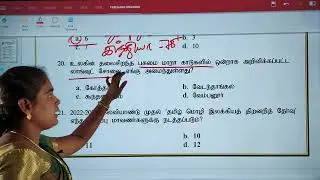 a. 6
b. 3
இந்தியா -
d. 10
20. உலகின் தலைசிறந்த பசுமை மாறா காடுகளில் ஒன்றாக அறிவிக்கப்பட்ட
சோலை எங்கு அமைந்துள்ளது?
a.
b. வேடந்தாங்கல்
c.
d. வேம்பனூர்
21. 2022-2 கல்வியாண்டு முதல் 'தமிழ் மொழி இலக்கியத் திறனறித் தேர்வு'
மாணவர்களுக்கு நடத்தப்படும்?
b. 10
11
d. 12